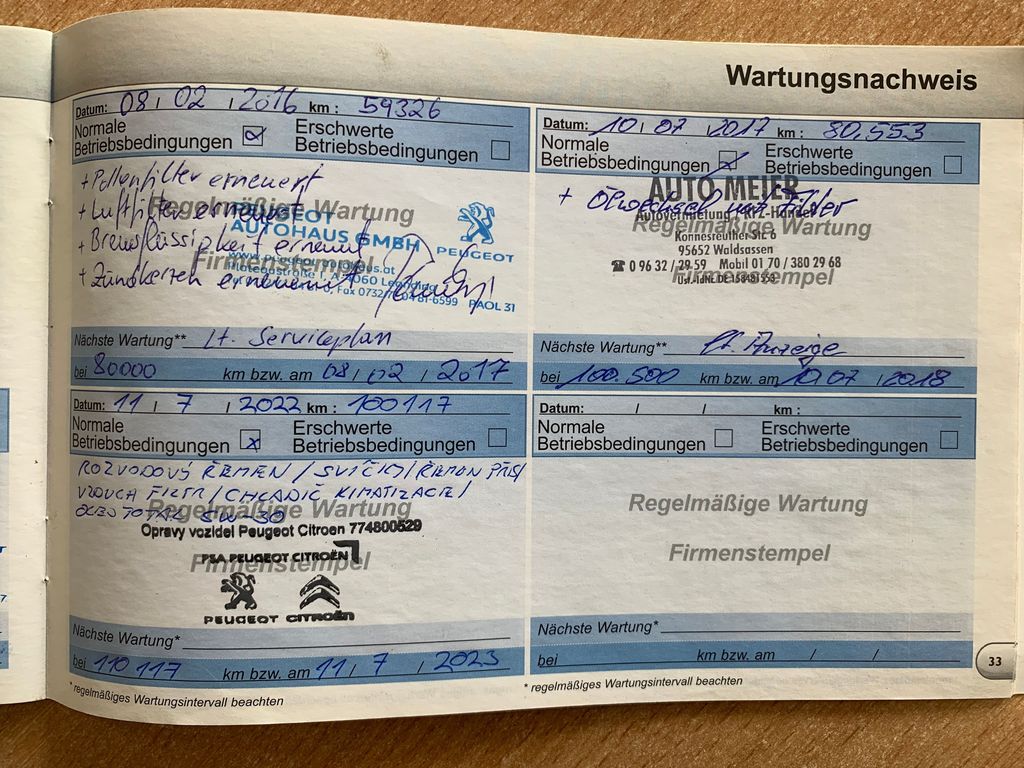 Wartungsnachweis
Datum: 08 / 02 / 2016 km : 59326
Normale Betriebsbedingungen
Erschwerte Betriebsbedingungen
+ Pollenfilter erneuert
+ Luftfilter erneuert
Regelmäßige Wartung
PEUGEOT
AUTOHAUS GMBH
PEUGEOT
+ Bremsflüssigkeit erneuert
Firmenstempel
+ Zündkerzen erneuert
PAOL 31
Nächste Wartung** Lt. Serviceplan
bei 80000 km bzw. am 08 / 02 / 2017
Datum: 10 / 07 / 2017 km : 80.553
Normale Betriebsbedingungen
Erschwerte Betriebsbedingungen
AUTO MEIER
+ Ölwechsel
Autovermietung
Regelmäßige Wartung
Konnesreuther Str. 6
95652 Waldsassen
☎ 0 96 32 / 29 59 Mobil 01 70 / 380 29 68
Firmenstempel
Nächste Wartung** lt. Anzeige
bei 100.500 km bzw. am 10 / 07 / 2018
Datum: 11 / 7 / 2022 km : 100117
Normale Betriebsbedingungen
x
Erschwerte Betriebsbedingungen
ROZVODOVÝ ŘEMEN / SVÍČKY / ŘEMEN
VZDUCH FILTR / CHLADIČ KLIMATIZACE /
Regelmäßige Wartung
OLEJ TOTAL 5W-30
Opravy vozidel Peugeot Citroen 774800529
PSA PEUGEOT CITROËN
Firmenstempel
PEUGEOT CITROËN
Nächste Wartung*
bei 110 117 km bzw. am 11 / 7 / 2023
* regelmäßiges Wartungsintervall beachten
Datum: / / km :
Normale Betriebsbedingungen
Erschwerte Betriebsbedingungen
Regelmäßige Wartung
Firmenstempel
Nächste Wartung*
bei km bzw. am / /
* regelmäßiges Wartungsintervall beachten
33